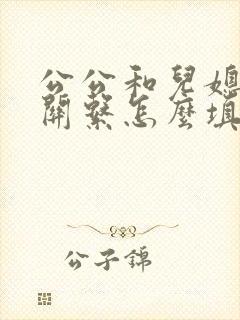 公公和兒媳
關繫怎麼填
公子錦